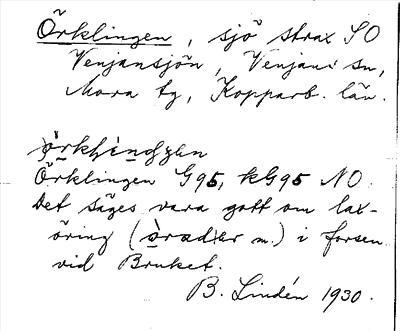 Örklingen, sjö strax SO
Venjansjön, Venjans sn,
Mora tg, Kopparb. län.
Örklingen G95, kG95 NO.
Det säges vara gott om lax-
öring (òradər m.) i forsen
vid Bruket.
B. Lindén 1930.